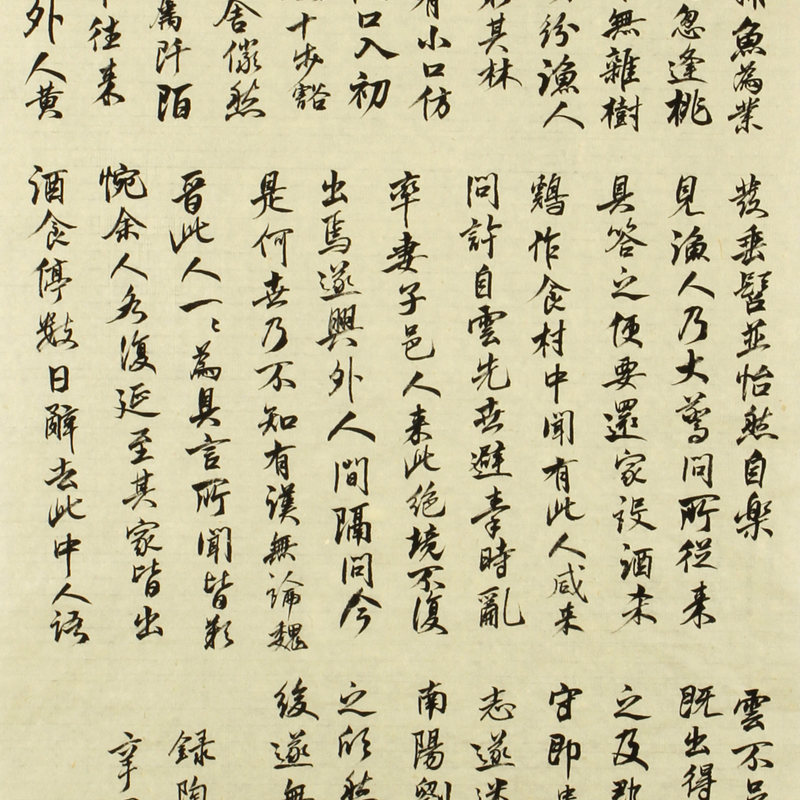 魚為業
忽逢桃
無雜樹
紛漁人
其林
有小口仿
口入初
十步豁
舍儼然
屬阡陌
往来
外人黄
发垂髫並怡然自樂
見漁人乃大驚問所從来
具答之便要還家設酒杀
鷄作食村中聞有此人咸来
問許自雲先世避秦時亂
率妻子邑人来此絶境不復
出焉遂興外人間隔問今
是何世乃不知有漢無論魏
晉此人一〻為具言所聞皆歎
惋余人各復延至其家皆出
酒食停數日辭去此中人語
雲不
既出得
之及郡
守即
志遂迷
南陽劉
之欣然
後遂無
録陶
辛